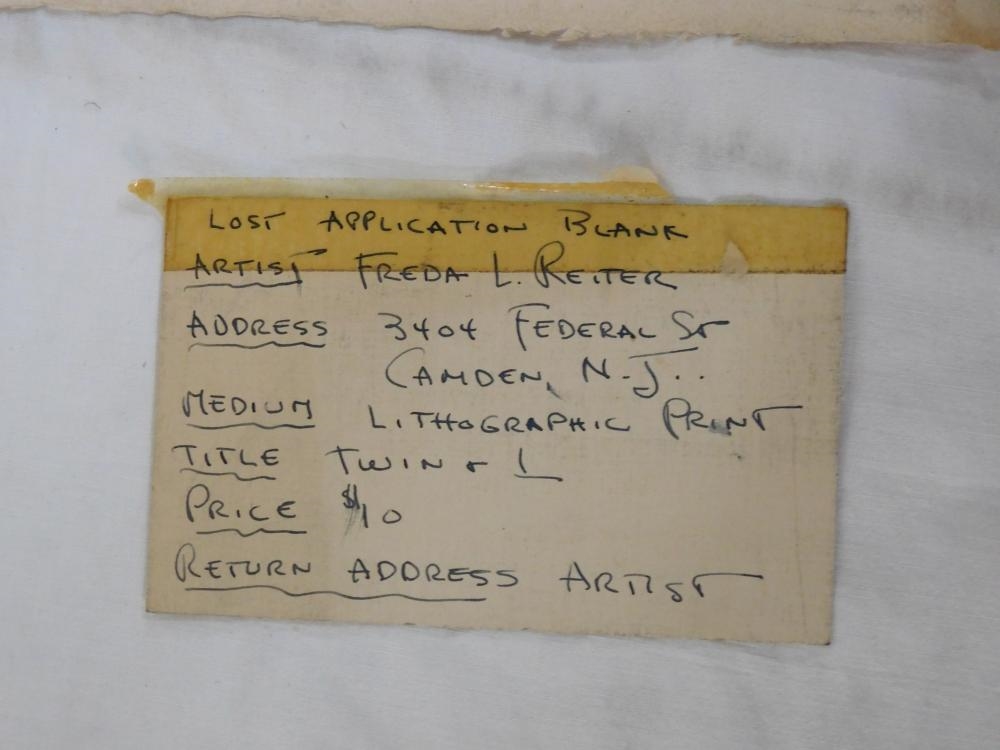 LOST APPLICATION BLANK
ARTIST FREDA L. REITER
ADDRESS 3404 FEDERAL ST
CAMDEN, N.J..
MEDIUM LITHOGRAPHIC PRINT
TITLE TWIN & I
PRICE $10
RETURN ADDRESS ARTIST